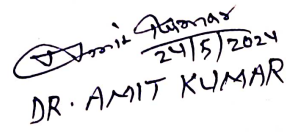 Amit Kumar
24/5/2024
DR. AMIT KUMAR